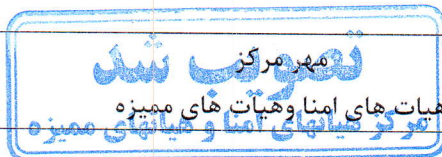 تصویب شد
مهر مرکز
هیات های امنا وهیات های ممیزه
مرکز هیاتهای امنا و هیاتهای ممیزه